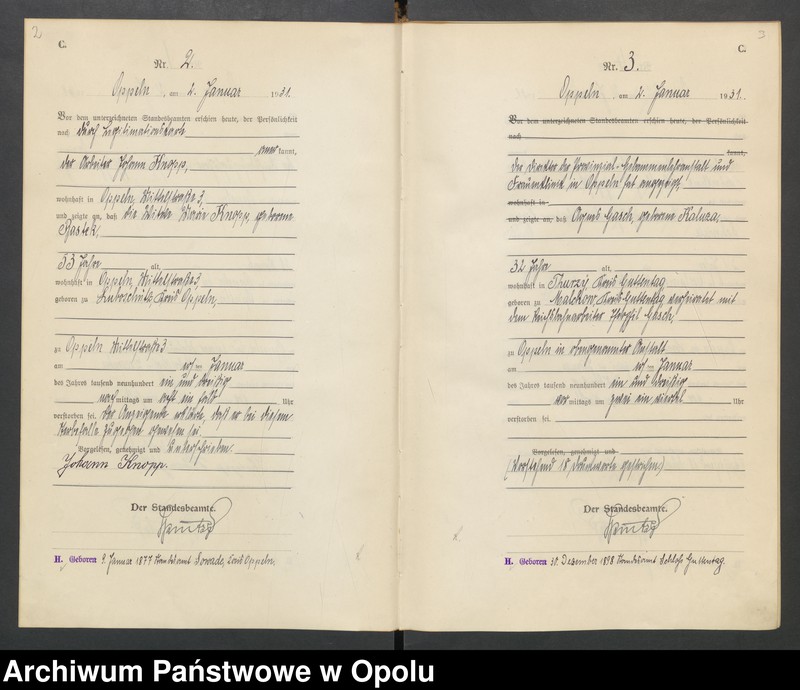 2
C.
Nr. 2.
Oppeln, am 2. Januar 1931.
Vor dem unterzeichneten Standesbeamten erschien heute, der Persönlichkeit
nach durch Legitimationskarte
anerkannt,
der Arbeiter Johann Knopp,
wohnhaft in Oppeln, Mittelstraße 3,
und zeigte an, daß die Witwe Marie Knopp, geborene
53 Jahre alt,
wohnhaft in Oppeln, Mittelstraße 3,
geboren zu Luboschütz Kreis Oppeln,
zu Oppeln Mittelstraße 3
am Januar
des Jahres tausend neunhundert ein und dreißig
nachmittags um ein halb Uhr
verstorben sei. Der Anzeigende erklärte, daß er bei diesem
Sterbefalle zugegen gewesen sei.
Vorgelesen, genehmigt und Unterschrieben.
Johann Knopp.
Der Standesbeamte.
H. Geboren 9. Januar 1877 Standesamt Sowade, Kreis Oppeln.
3
C.
Nr. 3.
Oppeln am 2. Januar 1931.
Vor dem unterzeichneten Standesbeamten erschien heute, der Persönlichkeit
nach
kannt,
Der Direktor der Provinzial-Hebammenlehranstalt und
Frauenklinik in Oppeln hat angezeigt,
wohnhaft in
und zeigte an, daß Agnes Gasch, geborene Kaluza,
32 Jahre alt,
wohnhaft in Thurzy Kreis Guttentag
geboren zu Malchow, Kreis Guttentag verheiratet mit
dem Gasch,
zu Oppeln in obengenannter Anstalt
am Januar
des Jahres tausend neunhundert ein und dreißig
vormittags um zwei ein viertel Uhr
verstorben sei.
Vorgelesen, genehmigt und
(Vorstehend 18 Druckworte gestrichen)
Der Standesbeamte.
H. Geboren 30. Dezember 1898 Standesamt Schloß Guttentag.
Archiwum Państwowe w Opolu